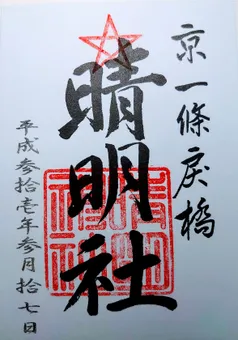 京一條戻橋
晴明社
平成参拾壱年参月拾七日